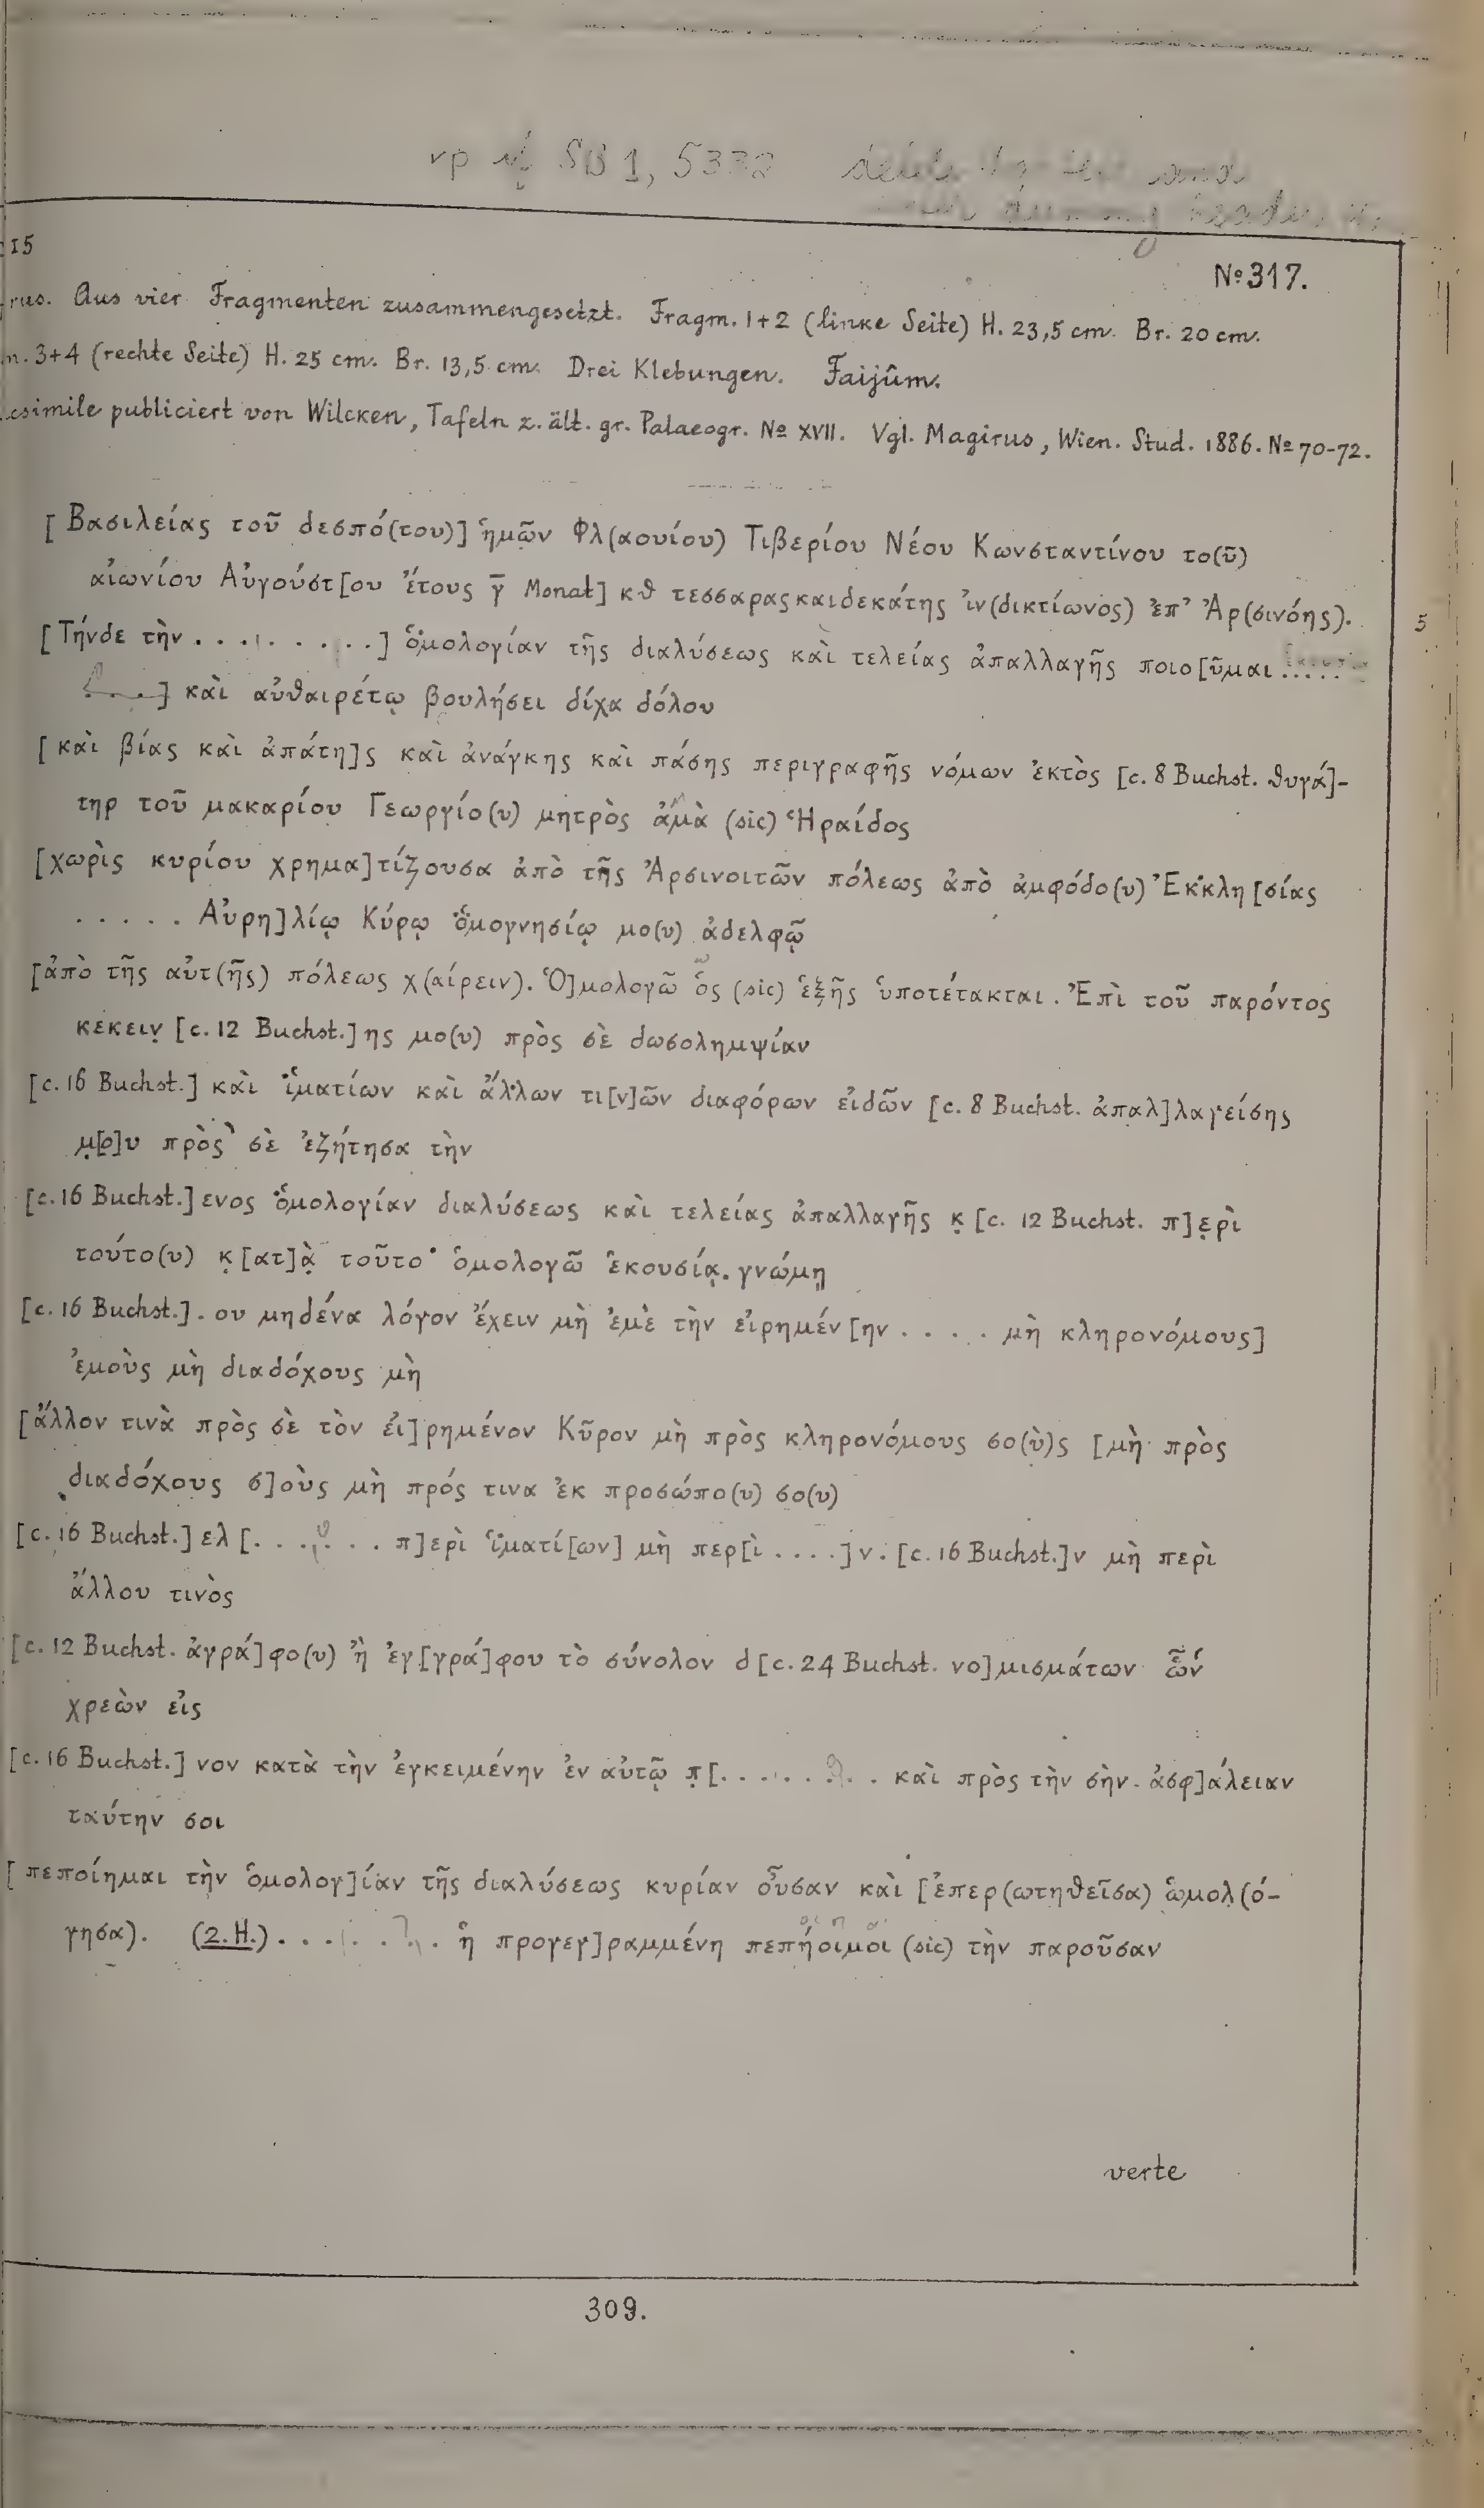 SB 1, 5332
15
№ 317.
rus. Aus vier Fragmenten zusammengesetzt. Fragm. 1+2 (linke Seite) H. 23,5 cm. Br. 20 cm.
m. 3+4 (rechte Seite) H. 25 cm. Br. 13,5 cm. Drei Klebungen. Faijûm.
csimile publiciert von Wilcken, Tafeln z. ält. gr. Palaeogr. № XVII. Vgl. Magirus, Wien. Stud. 1886. № 70-72.
[Βασιλείας τοῦ δεσπό(του)] ἡμῶν Φλ(αουίου) Τιβερίου Νέου Κωνσταντίνου το(ῦ)
αἰωνίου Αὐγούστ[ου ἔτους γ̅ Monat] κθ τεσσαρασκαιδεκάτης ἰν(δικτίωνος) ἐπ' Ἀρ(σινόης).
5
[Τήνδε τὴν . . . . . . . . .] ὁμολογίαν τῆς διαλύσεως καὶ τελείας ἀπαλλαγῆς ποιο[ῦμαι .....
] καὶ αὐθαιρέτῳ βουλήσει δίχα δόλου
[καὶ βίας καὶ ἀπάτη]ς καὶ ἀνάγκης καὶ πάσης περιγραφῆς νόμων ἐκτὸς [c. 8 Buchst. θυγά]-
τηρ τοῦ μακαρίου Γεωργίο(υ) μητρὸς ἀμὰ (sic) Ἡραίδος
[χωρὶς κυρίου χρημα]τίζουσα ἀπὸ τῆς Ἀρσινοιτῶν πόλεως ἀπὸ ἀμφόδο(υ) Ἐκκλη[σίας
. . . . . Αὐρη]λίῳ Κύρῳ ὁμογνησίῳ μο(υ) ἀδελφῷ
[ἀπὸ τῆς αὐτ(ῆς) πόλεως χ(αίρειν). Ὁ]μολογῶ ὃς (sic) ἑξῆς ὑποτέτακται. Ἐπὶ τοῦ παρόντος
κεκειν̣ [c. 12 Buchst.]ης μο(υ) πρὸς σὲ δωσολημψίαν
[c. 16 Buchst.] καὶ ἱματίων καὶ ἄλλων τι[ν]ῶν διαφόρων εἰδῶν [c. 8 Buchst. ἀπαλ]λαγείσης
μ̣[ο]υ πρὸς σὲ ἐζήτησα τὴν
[c. 16 Buchst.]ενος ὁμολογίαν διαλύσεως καὶ τελείας ἀπαλλαγῆς κ̣ [c. 12 Buchst. π]ε̣ρὶ
τούτο(υ) κ̣[ατ]ὰ̣ τοῦτο· ὁμολογῶ ἑκουσίᾳ. γνώμῃ
[c. 16 Buchst.]. ου μηδένα λόγον ἔχειν μὴ ἐμὲ τὴν εἰρημέν[ην . . . . . μὴ κληρονόμους]
ἐμοὺς μὴ διαδόχους μὴ
[ἄλλον τινὰ πρὸς σὲ τὸν εἰ]ρημένον Κῦρον μὴ πρὸς κληρονόμους σο(ὺ)ς [μὴ πρὸς
διαδόχους σ]οὺς μὴ πρός τινα ἐκ προσώπο(υ) σο(υ)
[c. 16 Buchst.]ελ[. . . . . . . π]ερὶ ἱματί[ων] μὴ περ[ὶ . . . .]ν. [c. 16 Buchst.]ν μὴ περὶ
ἄλλου τινὸς
[c. 12 Buchst. ἀγρά]φο(υ) ἢ ἐγ[γρά]φου τὸ σύνολον δ[c. 24 Buchst. νο]μισμάτων ὧν
χρεὼν εἰς
[c. 16 Buchst.]νον κατὰ τὴν ἐγκειμένην ἐν αὐτῷ π̣[. . . . . . . . . καὶ πρὸς τὴν σὴν ἀσφ]άλειαν
ταύτην σοι
[πεποίημαι τὴν ὁμολογ]ίαν τῆς διαλύσεως κυρίαν οὖσαν καὶ [ἐπερ(ωτηθεῖσα) ὡμολ(ό-
γησα). (2. H.) . . . . . . . . ἡ προγεγ]ραμμένη πεπήοιμοι (sic) τὴν παροῦσαν
verte
309.